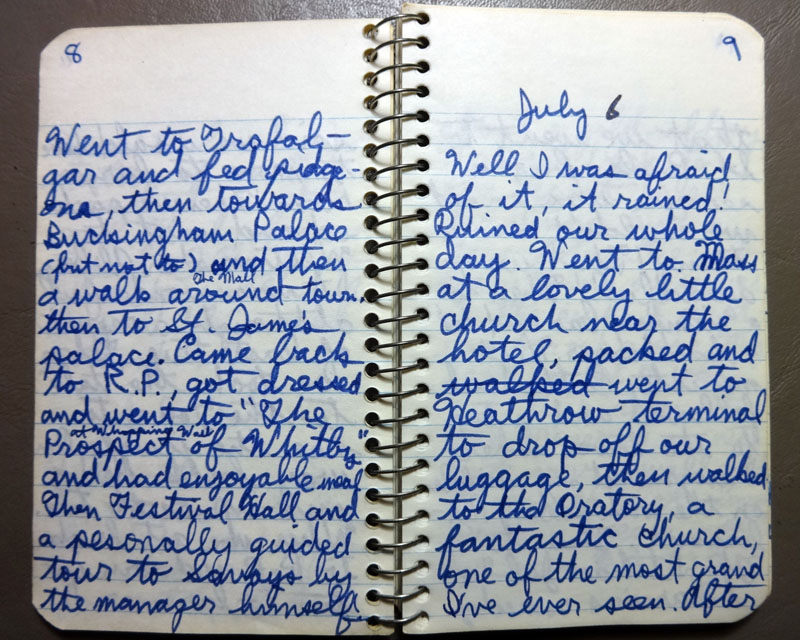 8
Went to Trafal-
gar and fed pidge-
ons, then towards
Buckingham Palace
(but not to) and then
The Mall
a walk around town,
then to St. James
palace. Came back
to R.P., got dressed
and went to "The
at Whapping Wall
Prospect of Whitby"
and had enjoyable meal
Then Festival Hall and
a pesonally guided
tour to Savoys by
the manager himself.
9
July 6
Well I was afraid
of it, it rained!
Ruined our whole
day. Went to Mass
at a lovely little
church near the
hotel, packed and
walked went to
Heathrow terminal
to drop off our
luggage, then walked
to the Oratory, a
fantastic church,
one of the most grand
I've ever seen. After